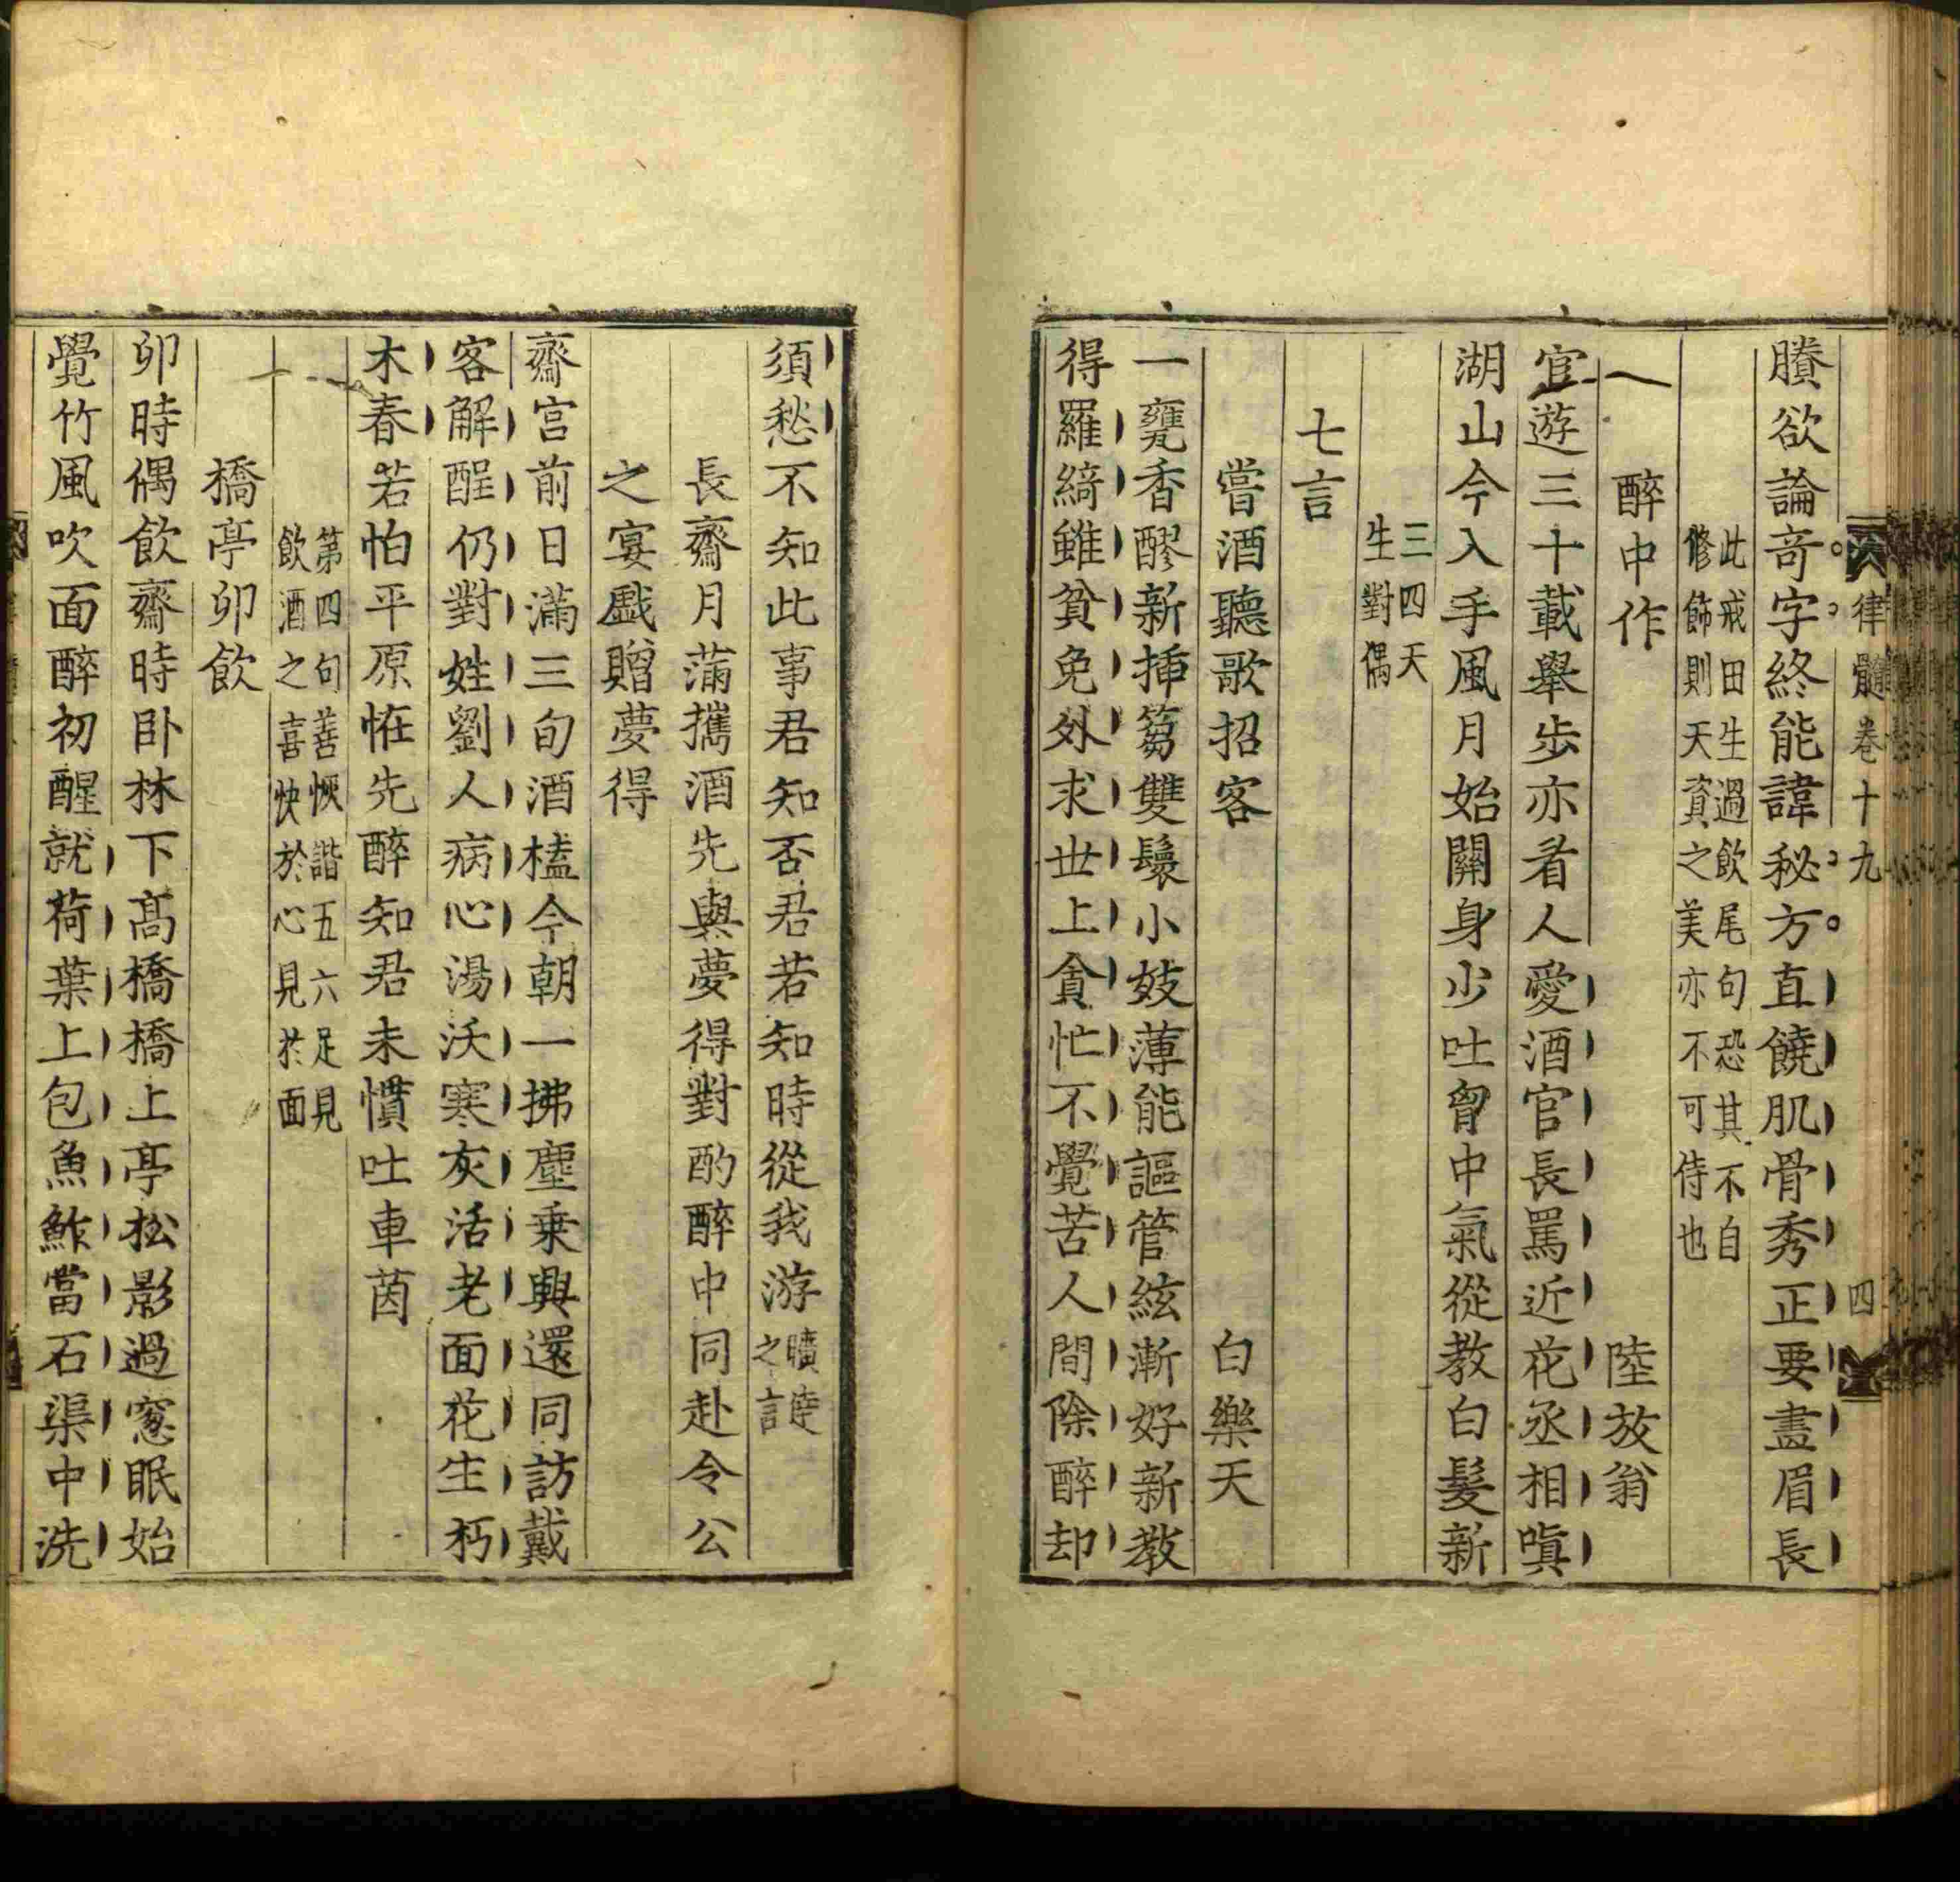 律髓卷十九 四
賸欲論竒字終能諱秘方直饒肌骨秀正要盡眉長
此戒田生過飲尾句恐其不自
修飾則天資之美亦不可侍也
醉中作 陸放翁
宦遊三十載舉歩亦看人愛酒官長罵近花丞相嗔
湖山今入手風月始關身少吐胷中氣從教白髪新
三四天
生對偶
七言
嘗酒聽歌招客 白樂天
一甕香醪新揷蒭雙鬟小妓薄能謳管絃漸好新教
得羅綺雖貧免外求世上貪忙不覺苦人間除醉却
須愁不知此事君知否君若知時從我游
曠達
之言
長齋月滿攜酒先與夢得對酌醉中同赴令公
之宴戲贈夢得
齋宫前日滿三旬酒榼今朝一拂塵乗興還同訪戴
客解酲仍對姓劉人病心湯沃寒灰活老面花生朽
木春若怕平原恠先醉知君未慣吐車茵
第四句善恢諧五六足見
飲酒之喜快於心見於面
橋亭卯飲
卯時偶飲齋時卧林下髙橋橋上亭松影過窓眠始
覺竹風吹面醉初醒就荷葉上包魚鮓當石渠中洗